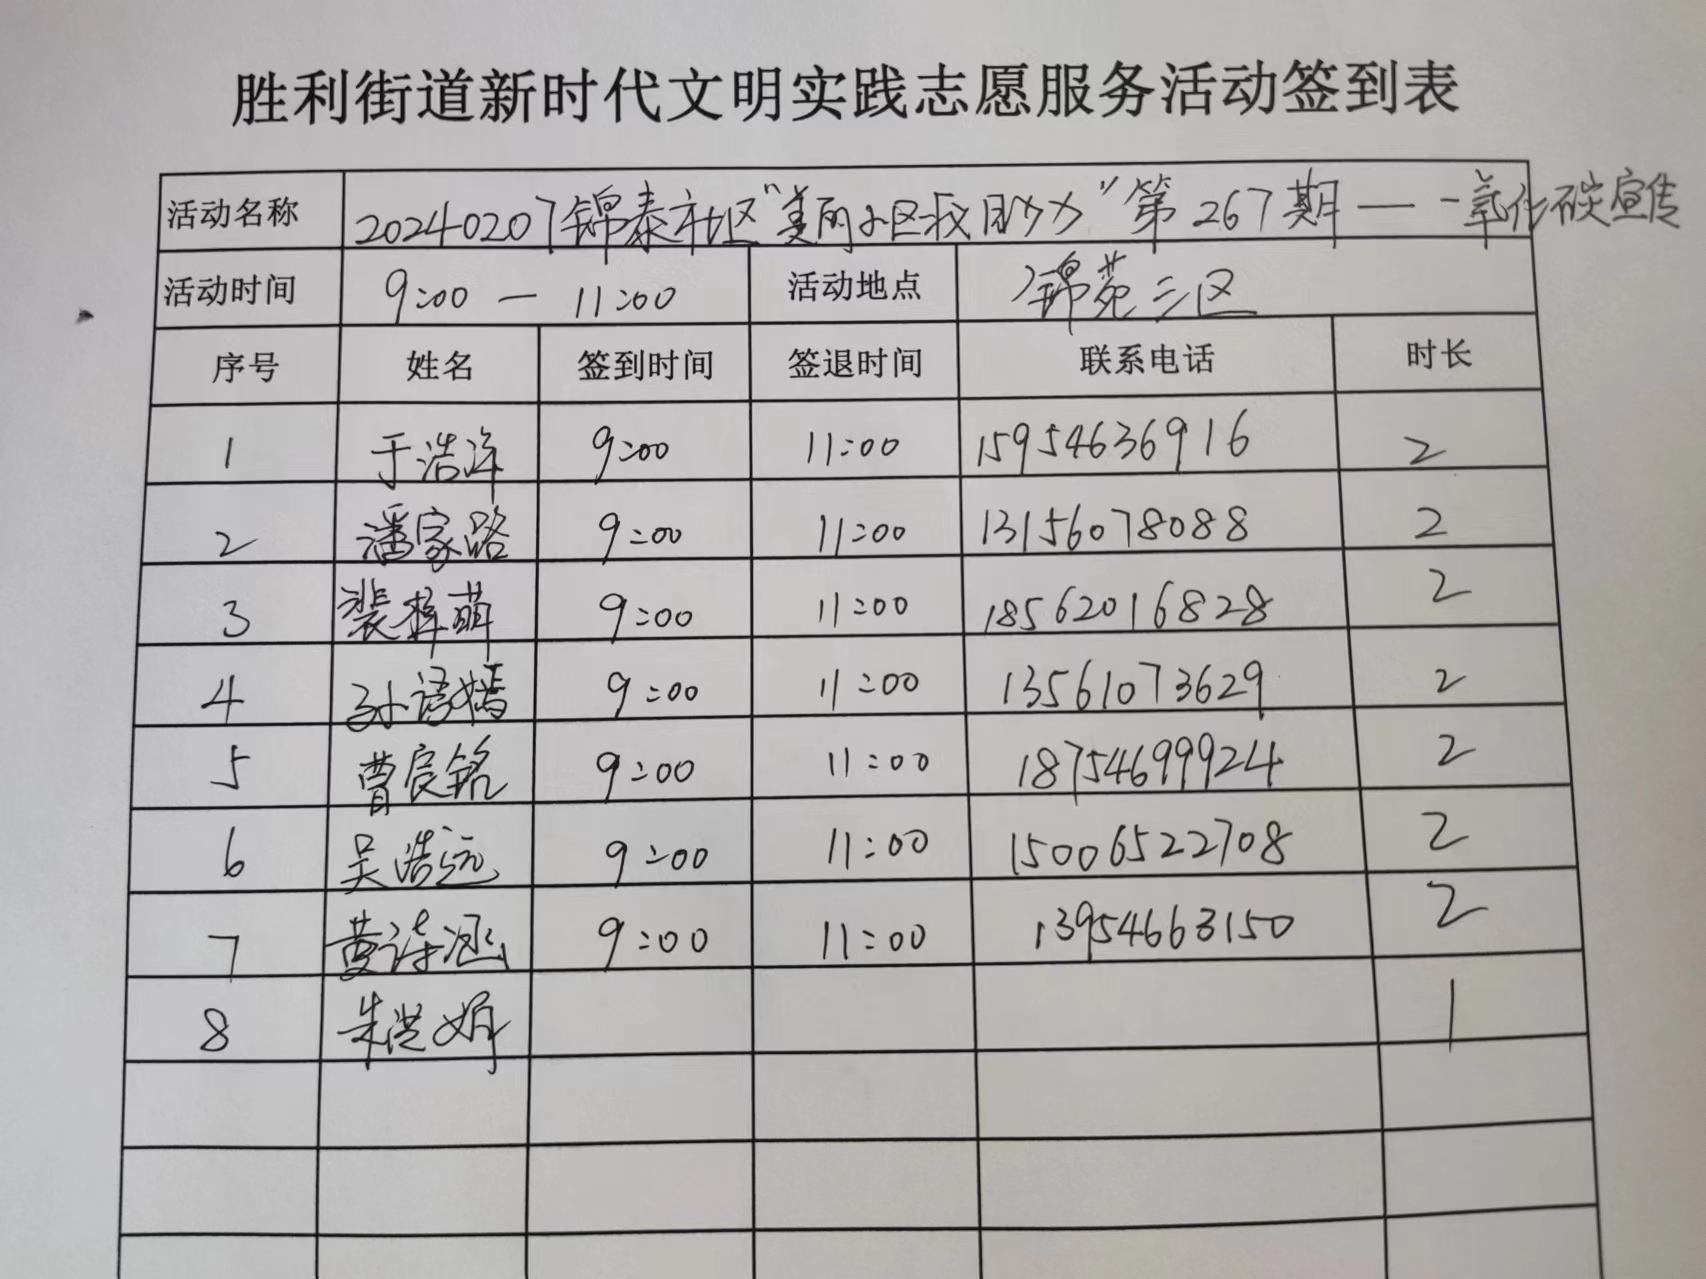 胜利街道新时代文明实践志愿服务活动签到表
活动名称 20240207锦泰社区"美丽小区我助力"第267期——一氧化碳宣传
活动时间 9:00 — 11:00 活动地点 锦苑三区
序号 姓名 签到时间 签退时间 联系电话 时长
1 于浩洋 9:00 11:00 15954636916 2
2 潘家路 9:00 11:00 13156078088 2
3 裴梓萌 9:00 11:00 18562016828 2
4 孙语嫣 9:00 11:00 13561073629 2
5 曹宸铭 9:00 11:00 18754699924 2
6 吴浩远 9:00 11:00 15006522708 2
7 黄诗涵 9:00 11:00 13954663150 2
8 朱娟 1